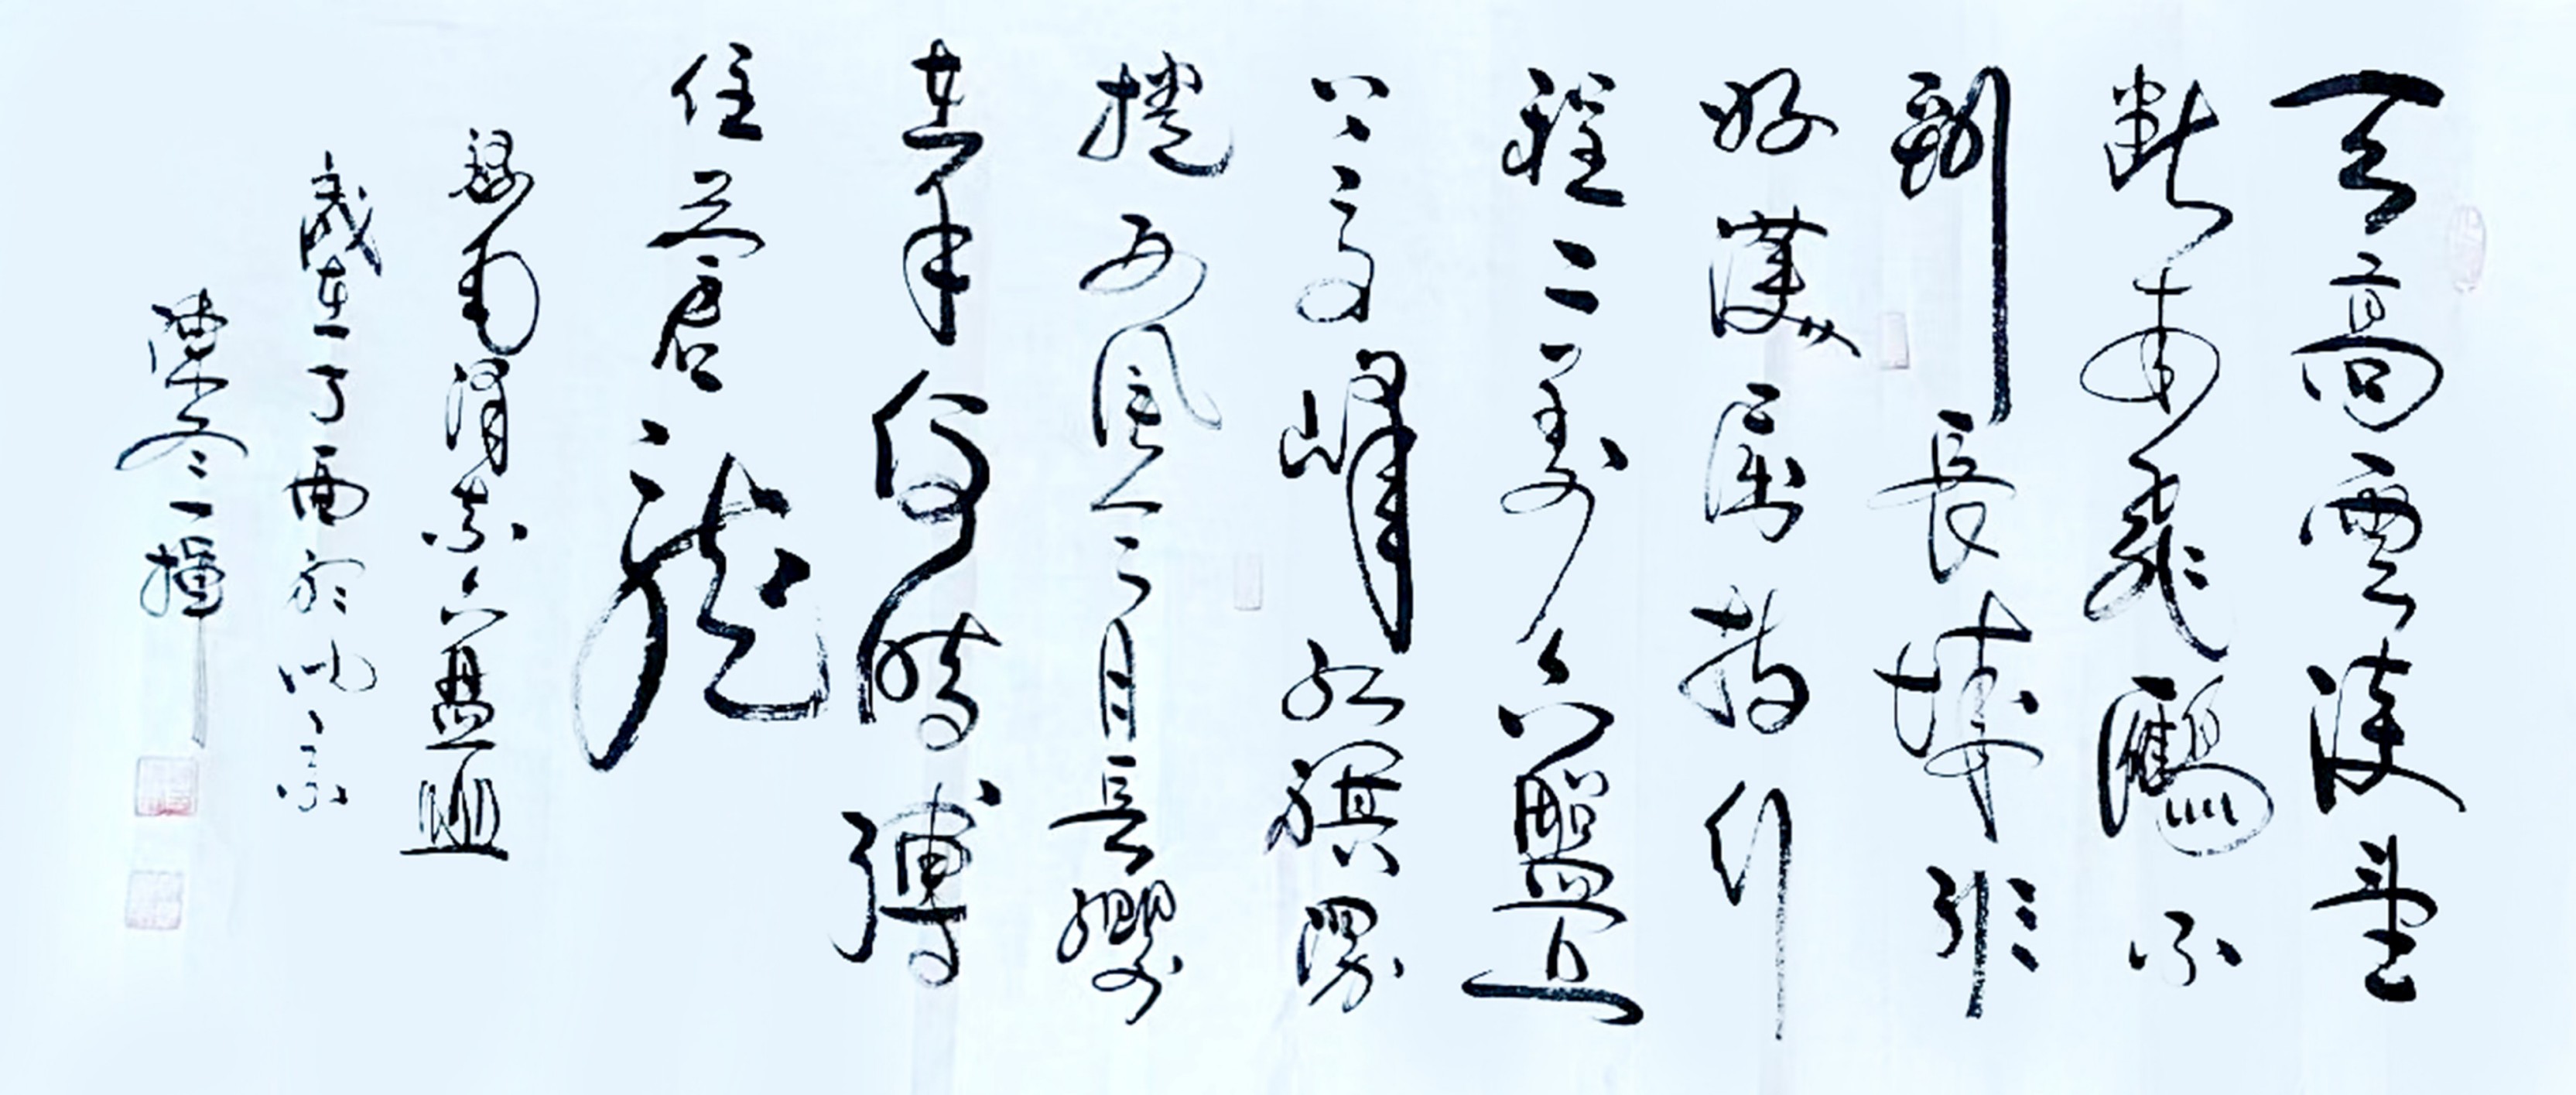 天高雲淡望
斷南飛雁不
到長城非
好漢屈指行
程二萬六盤山
上高峰紅旗漫
捲西風今日長纓
在手何時縛
住蒼龍
錄毛潤芝六盤山
歲在丁酉於北京
陳冬一撞